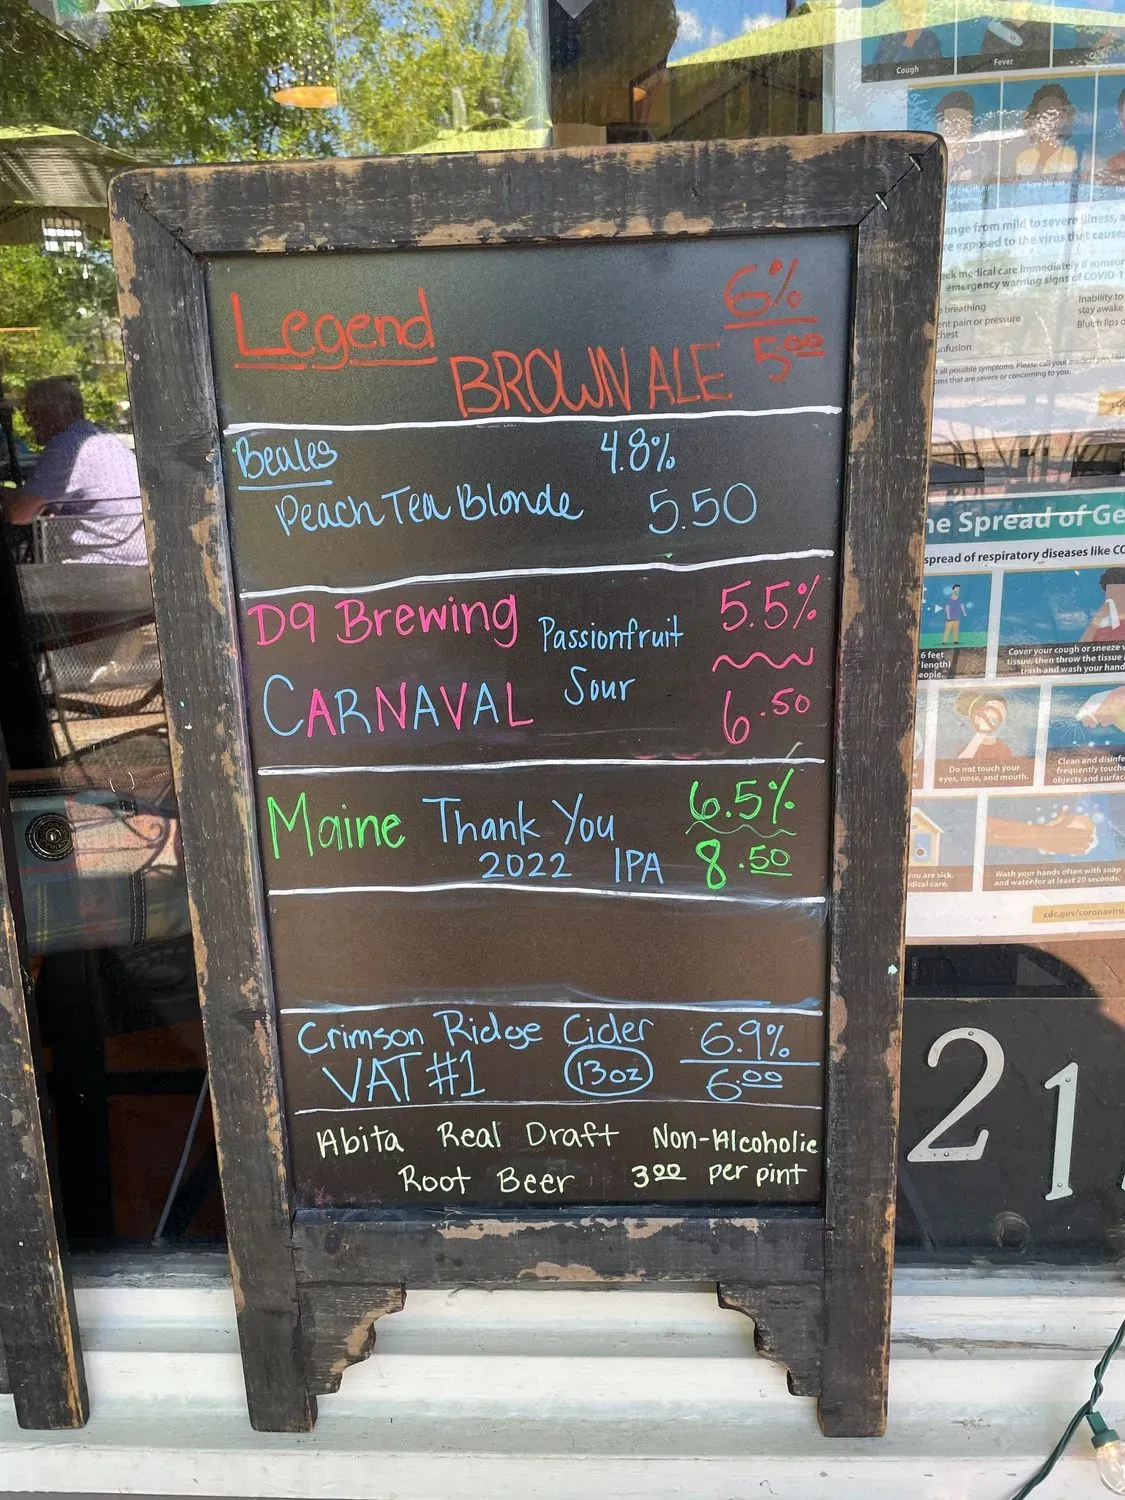 Legend
6%
BROWN ALE 5.00
Beales 4.8%
Peach Tea Blonde 5.50
D9 Brewing Passionfruit 5.5%
CARNAVAL Sour 6.50
Maine Thank You 6.5%
2022 IPA 8.50
Crimson Ridge Cider 6.9%
VAT #1 13oz 6.00
Abita Real Draft Non-Alcoholic
Root Beer 3.00 per pint
Cough
Fever
Sore throat
ange from mild to severe illness, a
re exposed to the virus that cause
eek medical care immediately if someon
emergency warning signs of COVID-1
e breathing
ent pain or pressure
chest
onfusion
Inability to
stay awake
Bluish lips o
all possible symptoms. Please call your medical provider
oms that are severe or concerning to you.
he Spread of Ge
spread of respiratory diseases like CO
6 feet
length)
eople.
Cover your cough or sneeze w
tissue, then throw the tissue
trash and wash your hand
Do not touch your
eyes, nose, and mouth.
Clean and disinfe
frequently touche
objects and surfac
you are sick,
dical care.
Wash your hands often with soap
and water for at least 20 seconds.
cdc.gov/coronavirus
21